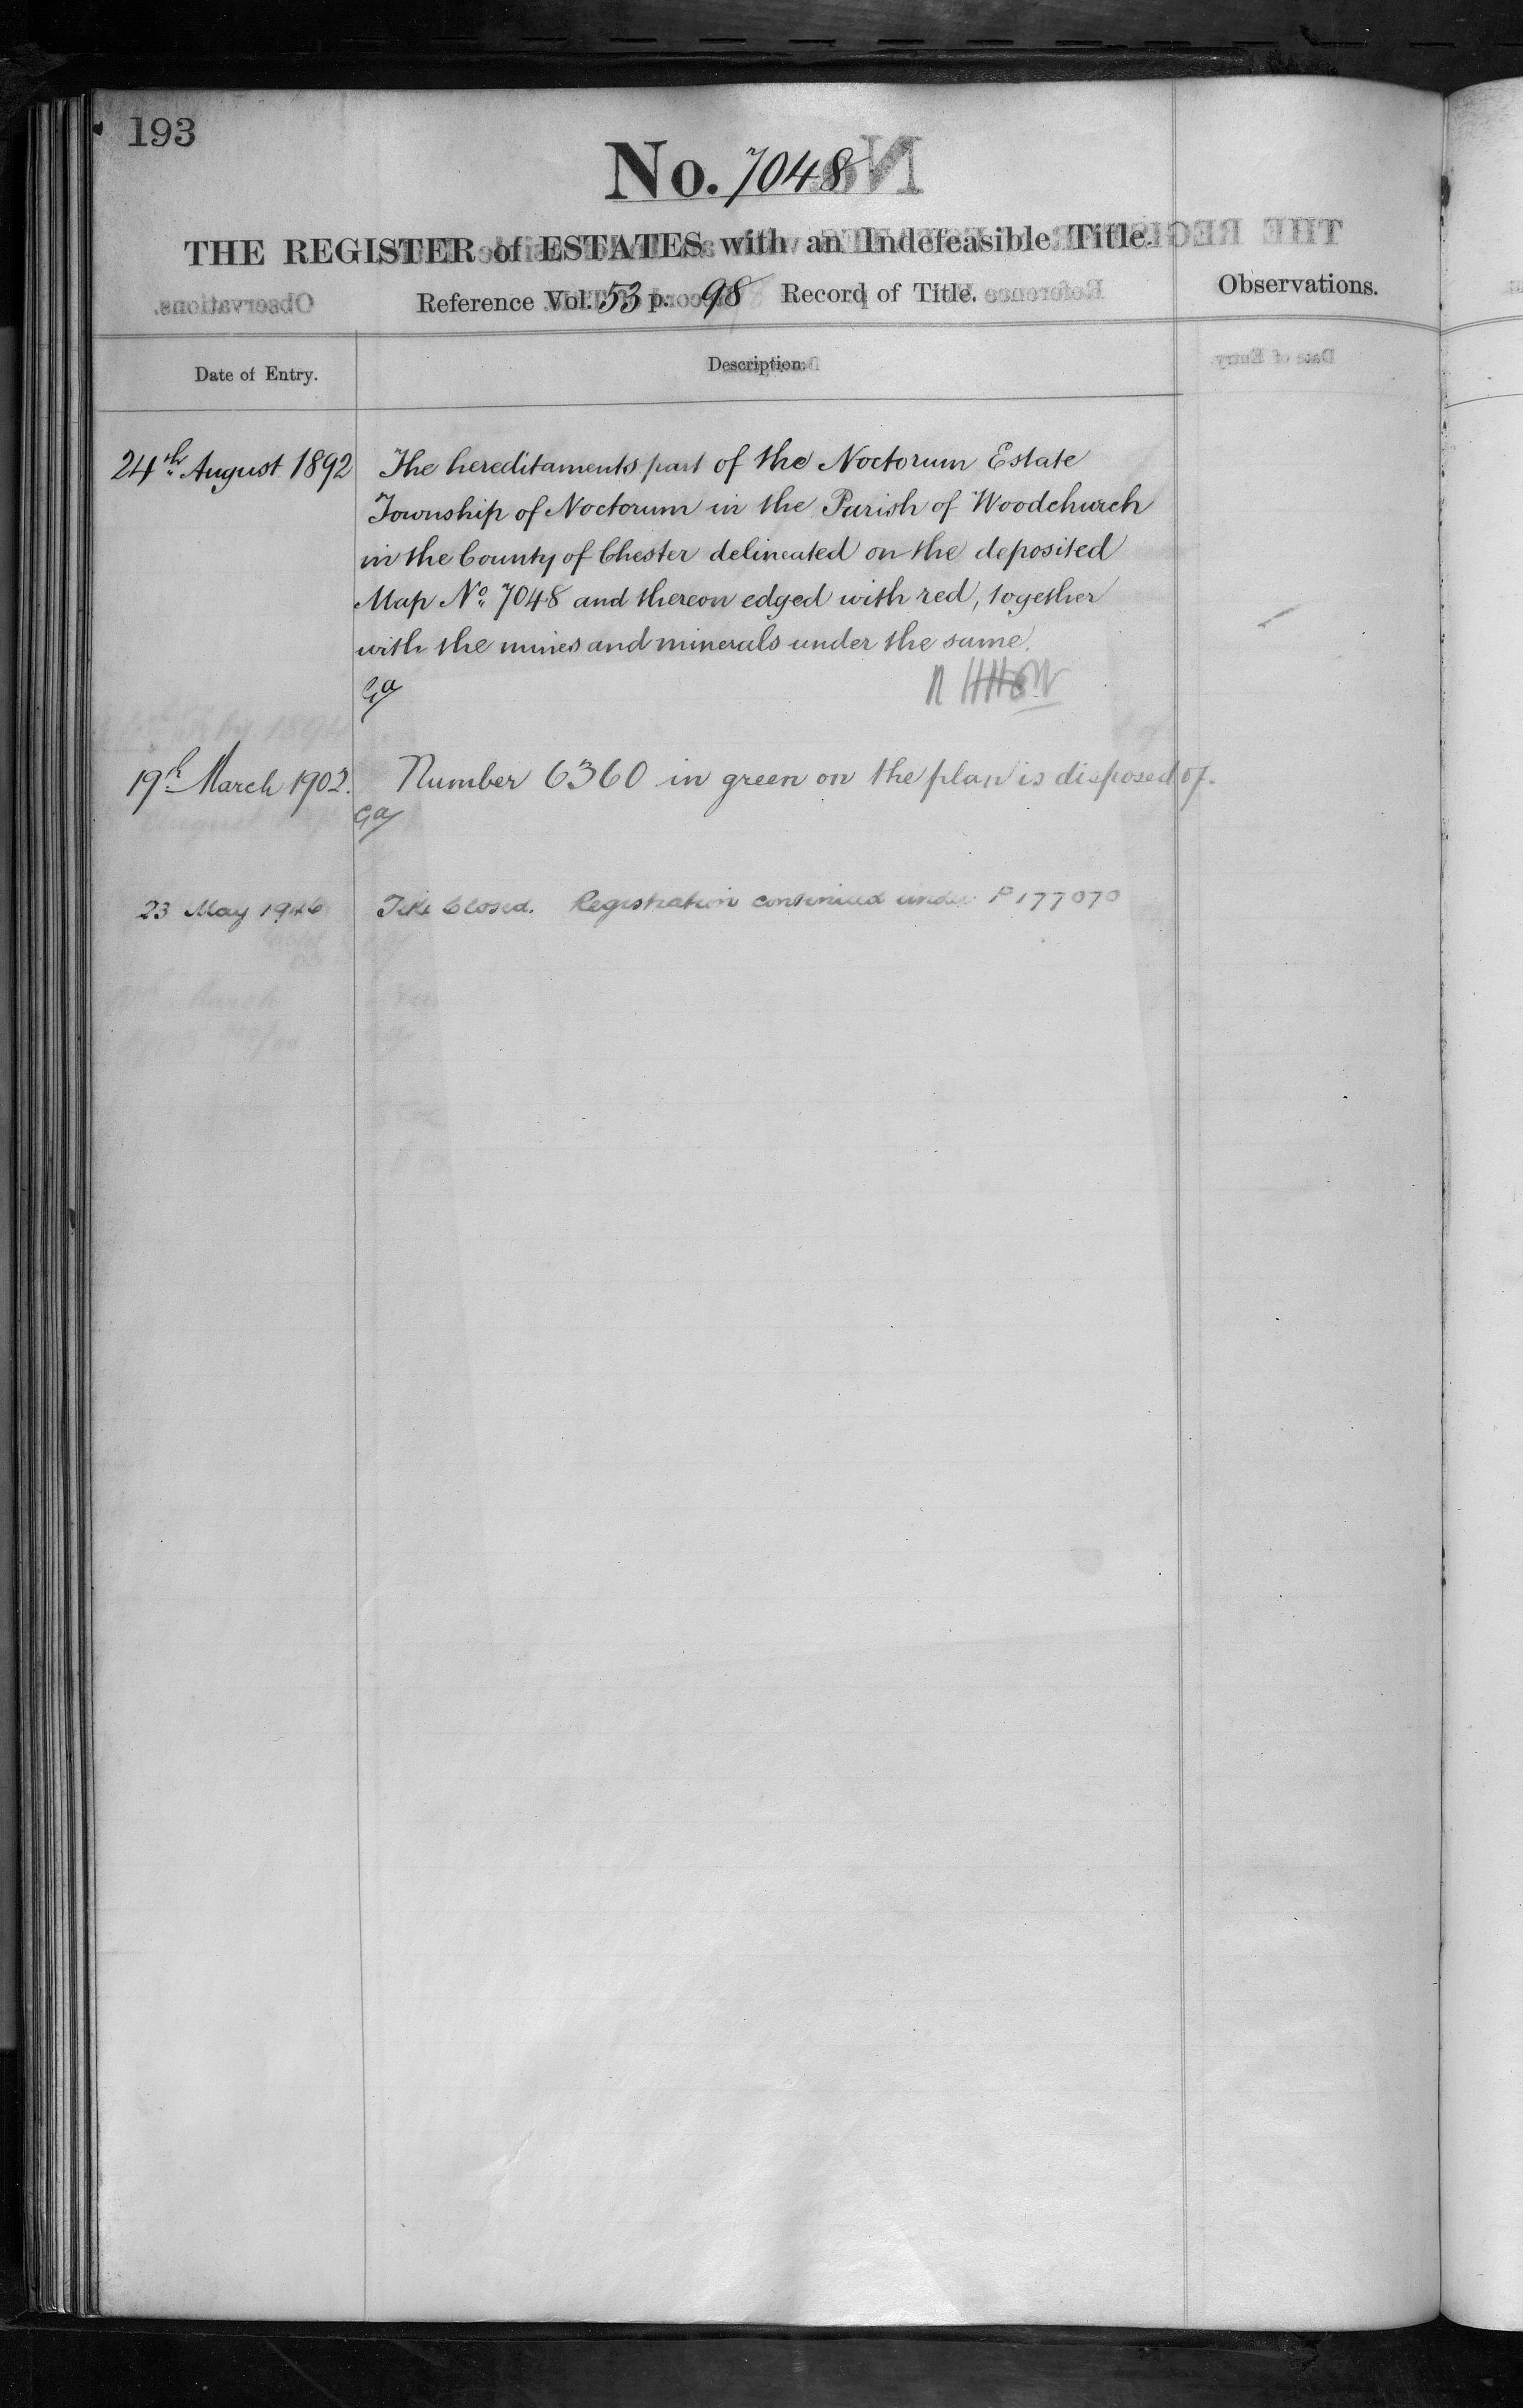 193
No. 7048
THE REGISTER of ESTATES with an Indefeasible Title.
Reference Vol. 53 p. 98 Record of Title.
Observations.
Date of Entry.
Description.
24th August 1892
The hereditaments part of the Noctorum Estate
Township of Noctorum in the Parish of Woodchurch
in the County of Chester delineated on the deposited
Map No. 7048 and thereon edged with red, together
with the mines and minerals under the same.
19th March 1902.
Number 6360 in green on the plan is disposed of.
23 May 1946
Title Closed. Registration continued under P 177070